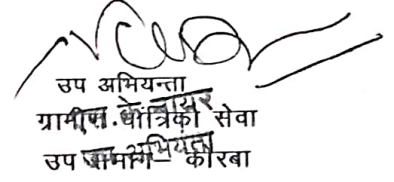 उप अभियन्ता
ग्रामीण यांत्रिकी सेवा
उप संभाग – कोरबा